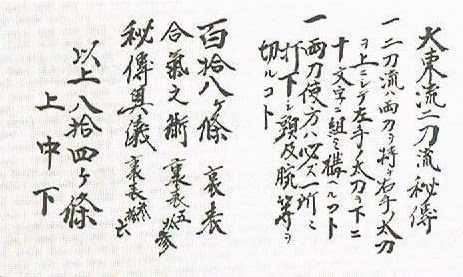 大東流二刀流秘傳
一二刀流ハ両刀ヲ持チ右手ノ太刀
ヲ上ニシテ左手ノ太刀ヲ下ニ
十文字ニ組ミ構ヘルコト
一両刀使方ハ必ズ一所ニ
打下シ頭及腕等ヲ
切ルコト
百拾八ケ條 裏表
合氣之術 裏表五拾参
秘傳奥儀 裏表参拾六
以上八拾四ケ條
上中下